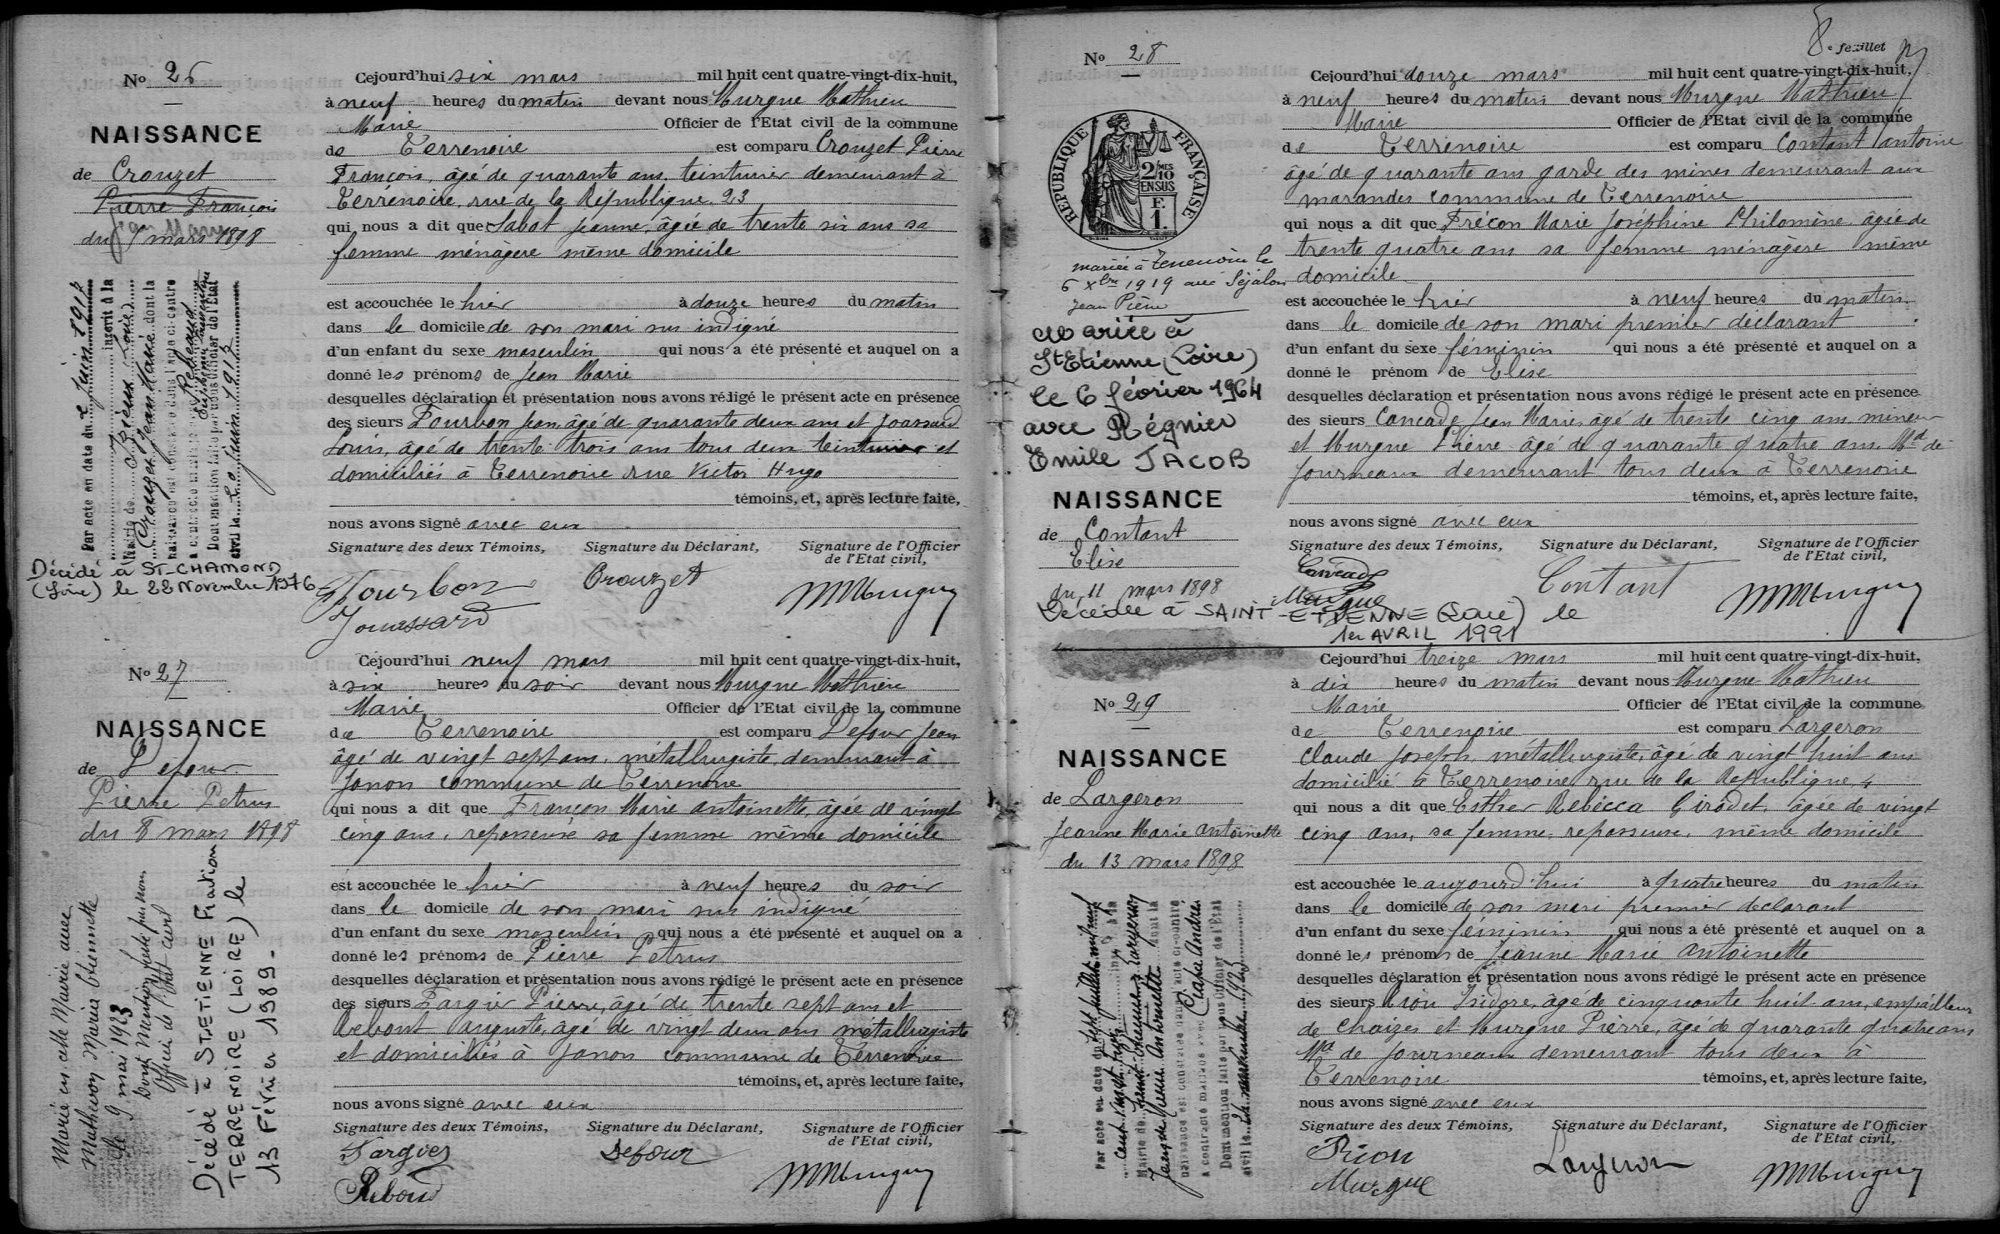 No 26
NAISSANCE
de Crouzet
Pierre François
Jean Marie
du 5 mars 1898
Par acte en date du 2 Juin 1917
inscrit à la
Mairie de Izieux (Loire)
Crouzet Jean Marie dont la
naissance est constatée dans l'acte ci-contre
a contracté mariage avec
Dont mention faite par nous Officier de l'Etat
civil le 20 Juin 1917
Décédé à ST-CHAMOND
(Loire) le 28 Novembre 1976
Cejourd'hui six mars mil huit cent quatre-vingt-dix-huit,
à neuf heures du matin devant nous Murgue Mathieu
Marie Officier de l'Etat civil de la commune
de Terrenoire est comparu Crouzet Pierre
François, âgé de quarante ans, teinturier demeurant à
Terrenoire, rue de la République 23
qui nous a dit que Sabot Jeanne, âgée de trente six ans sa
femme ménagère même domicile
est accouchée le hier à douze heures du matin
dans le domicile de son mari sus indiqué
d'un enfant du sexe masculin qui nous a été présenté et auquel on a
donné les prénoms de Jean Marie
desquelles déclaration et présentation nous avons rédigé le présent acte en présence
des sieurs Fourbon Jean âgé de quarante deux ans et Jouassard
Louis, âgé de trente trois ans tous deux teinturier et
domiciliés à Terrenoire rue Victor Hugo
témoins, et, après lecture faite,
nous avons signé avec eux
Signature des deux Témoins, Signature du Déclarant, Signature de l'Officier
de l'Etat civil,
Fourbon Crouzet MMurgue
Jouassard
No 27
NAISSANCE
de Defour
Pierre Petrus
du 8 mars 1898
Marié en cette Mairie avec
Matheron Maria Etiennette
le 9 mai 1923
Dont Mention faite par nous
Officier de l'Etat civil
Décédé à ST ETIENNE Fraction
TERRENOIRE (LOIRE) le
13 Février 1989-
Cejourd'hui neuf mars mil huit cent quatre-vingt-dix-huit,
à six heures du soir devant nous Murgue Mathieu
Marie Officier de l'Etat civil de la commune
de Terrenoire est comparu Defour Jean
âgé de vingt sept ans, métallurgiste, demeurant à
Janon commune de Terrenoire
qui nous a dit que Françon Marie Antoinette, âgée de vingt
cinq ans, repasseuse sa femme même domicile
est accouchée le hier à neuf heures du soir
dans le domicile de son mari sus indiqué
d'un enfant du sexe masculin qui nous a été présenté et auquel on a
donné les prénoms de Pierre Petrus
desquelles déclaration et présentation nous avons rédigé le présent acte en présence
des sieurs Fargier Pierre, âgé de trente sept ans et
Reboud Auguste, âgé de vingt deux ans métallurgiste
et domiciliés à Janon commune de Terrenoire
témoins, et, après lecture faite,
nous avons signé avec eux
Signature des deux Témoins, Signature du Déclarant, Signature de l'Officier
de l'Etat civil,
Fargier Defour MMurgue
Reboud
8e feuillet
No 28
REPUBLIQUE FRANÇAISE
2/10 EN SUS
F. 1.
mariée à Terrenoire le
6 Xbre 1919 avec Séjalon
Jean Pierre
Mariée à
St Etienne (Loire)
le 6 février 1964
avec Régnier
Emile JACOB
NAISSANCE
de Contant
Elise
du 11 mars 1898
Décédée à SAINT-ETIENNE (Loire) le
1er AVRIL 1991
Cejourd'hui douze mars mil huit cent quatre-vingt-dix-huit,
à neuf heures du matin devant nous Murgue Mathieu
Marie Officier de l'Etat civil de la commune
de Terrenoire est comparu Contant Antoine
âgé de quarante ans garde des mines demeurant aux
marandes commune de Terrenoire
qui nous a dit que Frécon Marie Joséphine Philomène âgée de
trente quatre ans sa femme ménagère même
domicile
est accouchée le hier à neuf heures du matin
dans le domicile de son mari premier déclarant
d'un enfant du sexe féminin qui nous a été présenté et auquel on a
donné le prénom de Elise
desquelles déclaration et présentation nous avons rédigé le présent acte en présence
des sieurs Cancade Jean Marie, âgé de trente cinq ans, mineur
et Murgue Pierre âgé de quarante quatre ans, Md de
journeaux demeurant tous deux à Terrenoire
témoins, et, après lecture faite,
nous avons signé avec eux
Signature des deux Témoins, Signature du Déclarant, Signature de l'Officier
de l'Etat civil,
Cancade Contant MMurgue
Murgue
No 29
NAISSANCE
de Largeron
Jeanne Marie Antoinette
du 13 mars 1898
Par acte en date du sept juillet mil neuf
cent vingt trois inscrit à la
Mairie de
Jeanne Marie Antoinette dont la
naissance est constatée dans l'acte ci-contre
a contracté mariage avec
Dont mention faite par nous Officier de l'Etat
civil le
Cejourd'hui treize mars mil huit cent quatre-vingt-dix-huit,
à dix heures du matin devant nous Murgue Mathieu
Marie Officier de l'Etat civil de la commune
de Terrenoire est comparu Largeron
Claude Joseph, métallurgiste, âgé de vingt huit ans
domicilié à Terrenoire rue de la République, 4
qui nous a dit que Esther Rebecca Girodet, âgée de vingt
cinq ans, sa femme, repasseuse, même domicile
est accouchée le aujourd'hui à quatre heures du matin
dans le domicile de son mari premier declarant
d'un enfant du sexe féminin qui nous a été présenté et auquel on a
donné les prénoms de Jeanne Marie Antoinette
desquelles déclaration et présentation nous avons rédigé le présent acte en présence
des sieurs Isidore, âgé de cinquante huit ans, empailleur
de chaizes et Murgue Pierre, âgé de quarante quatre ans
Md de journeaux demeurant tous deux à
Terrenoire témoins, et, après lecture faite,
nous avons signé avec eux
Signature des deux Témoins, Signature du Déclarant, Signature de l'Officier
de l'Etat civil,
Largeron MMurgue
Murgue